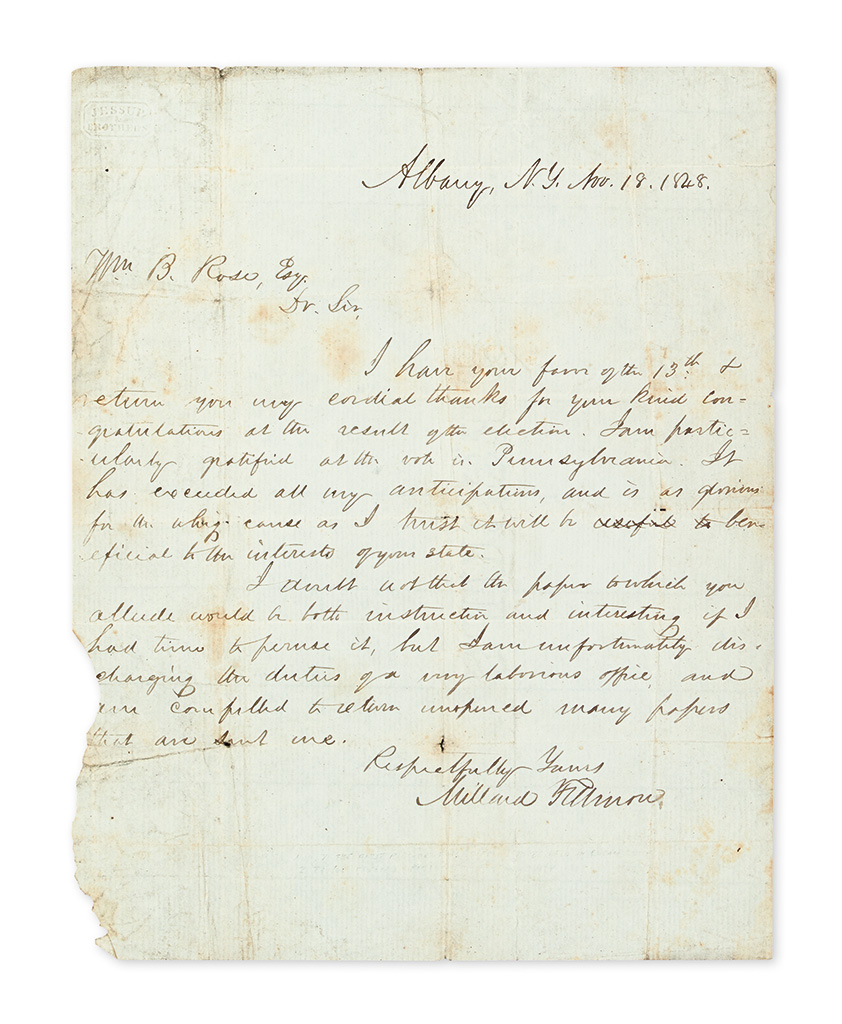 JESSUP
&
BROTHERS
Albany, N.Y. Nov. 18. 1848.
Wm B. Rose, Esq.
Dr. Sir,
I have your favor of the 13th &
return you my cordial thanks for your kind con=
gratulations at the result of the election. I am partic=
ularly gratified at the vote in Pennsylvania. It
has exceeded all my anticipations, and is as glorious
for the whig cause as I trust it will be useful to ben-
eficial to the interests of your state.
I doubt not that the paper to which you
allude would be both instructive and interesting if I
had time to peruse it, but I am unfortunately dis-
charging the duties of a very laborious office, and
am compelled to return unopened many papers
that are sent me.
Respectfully Yours
Millard Fillmore